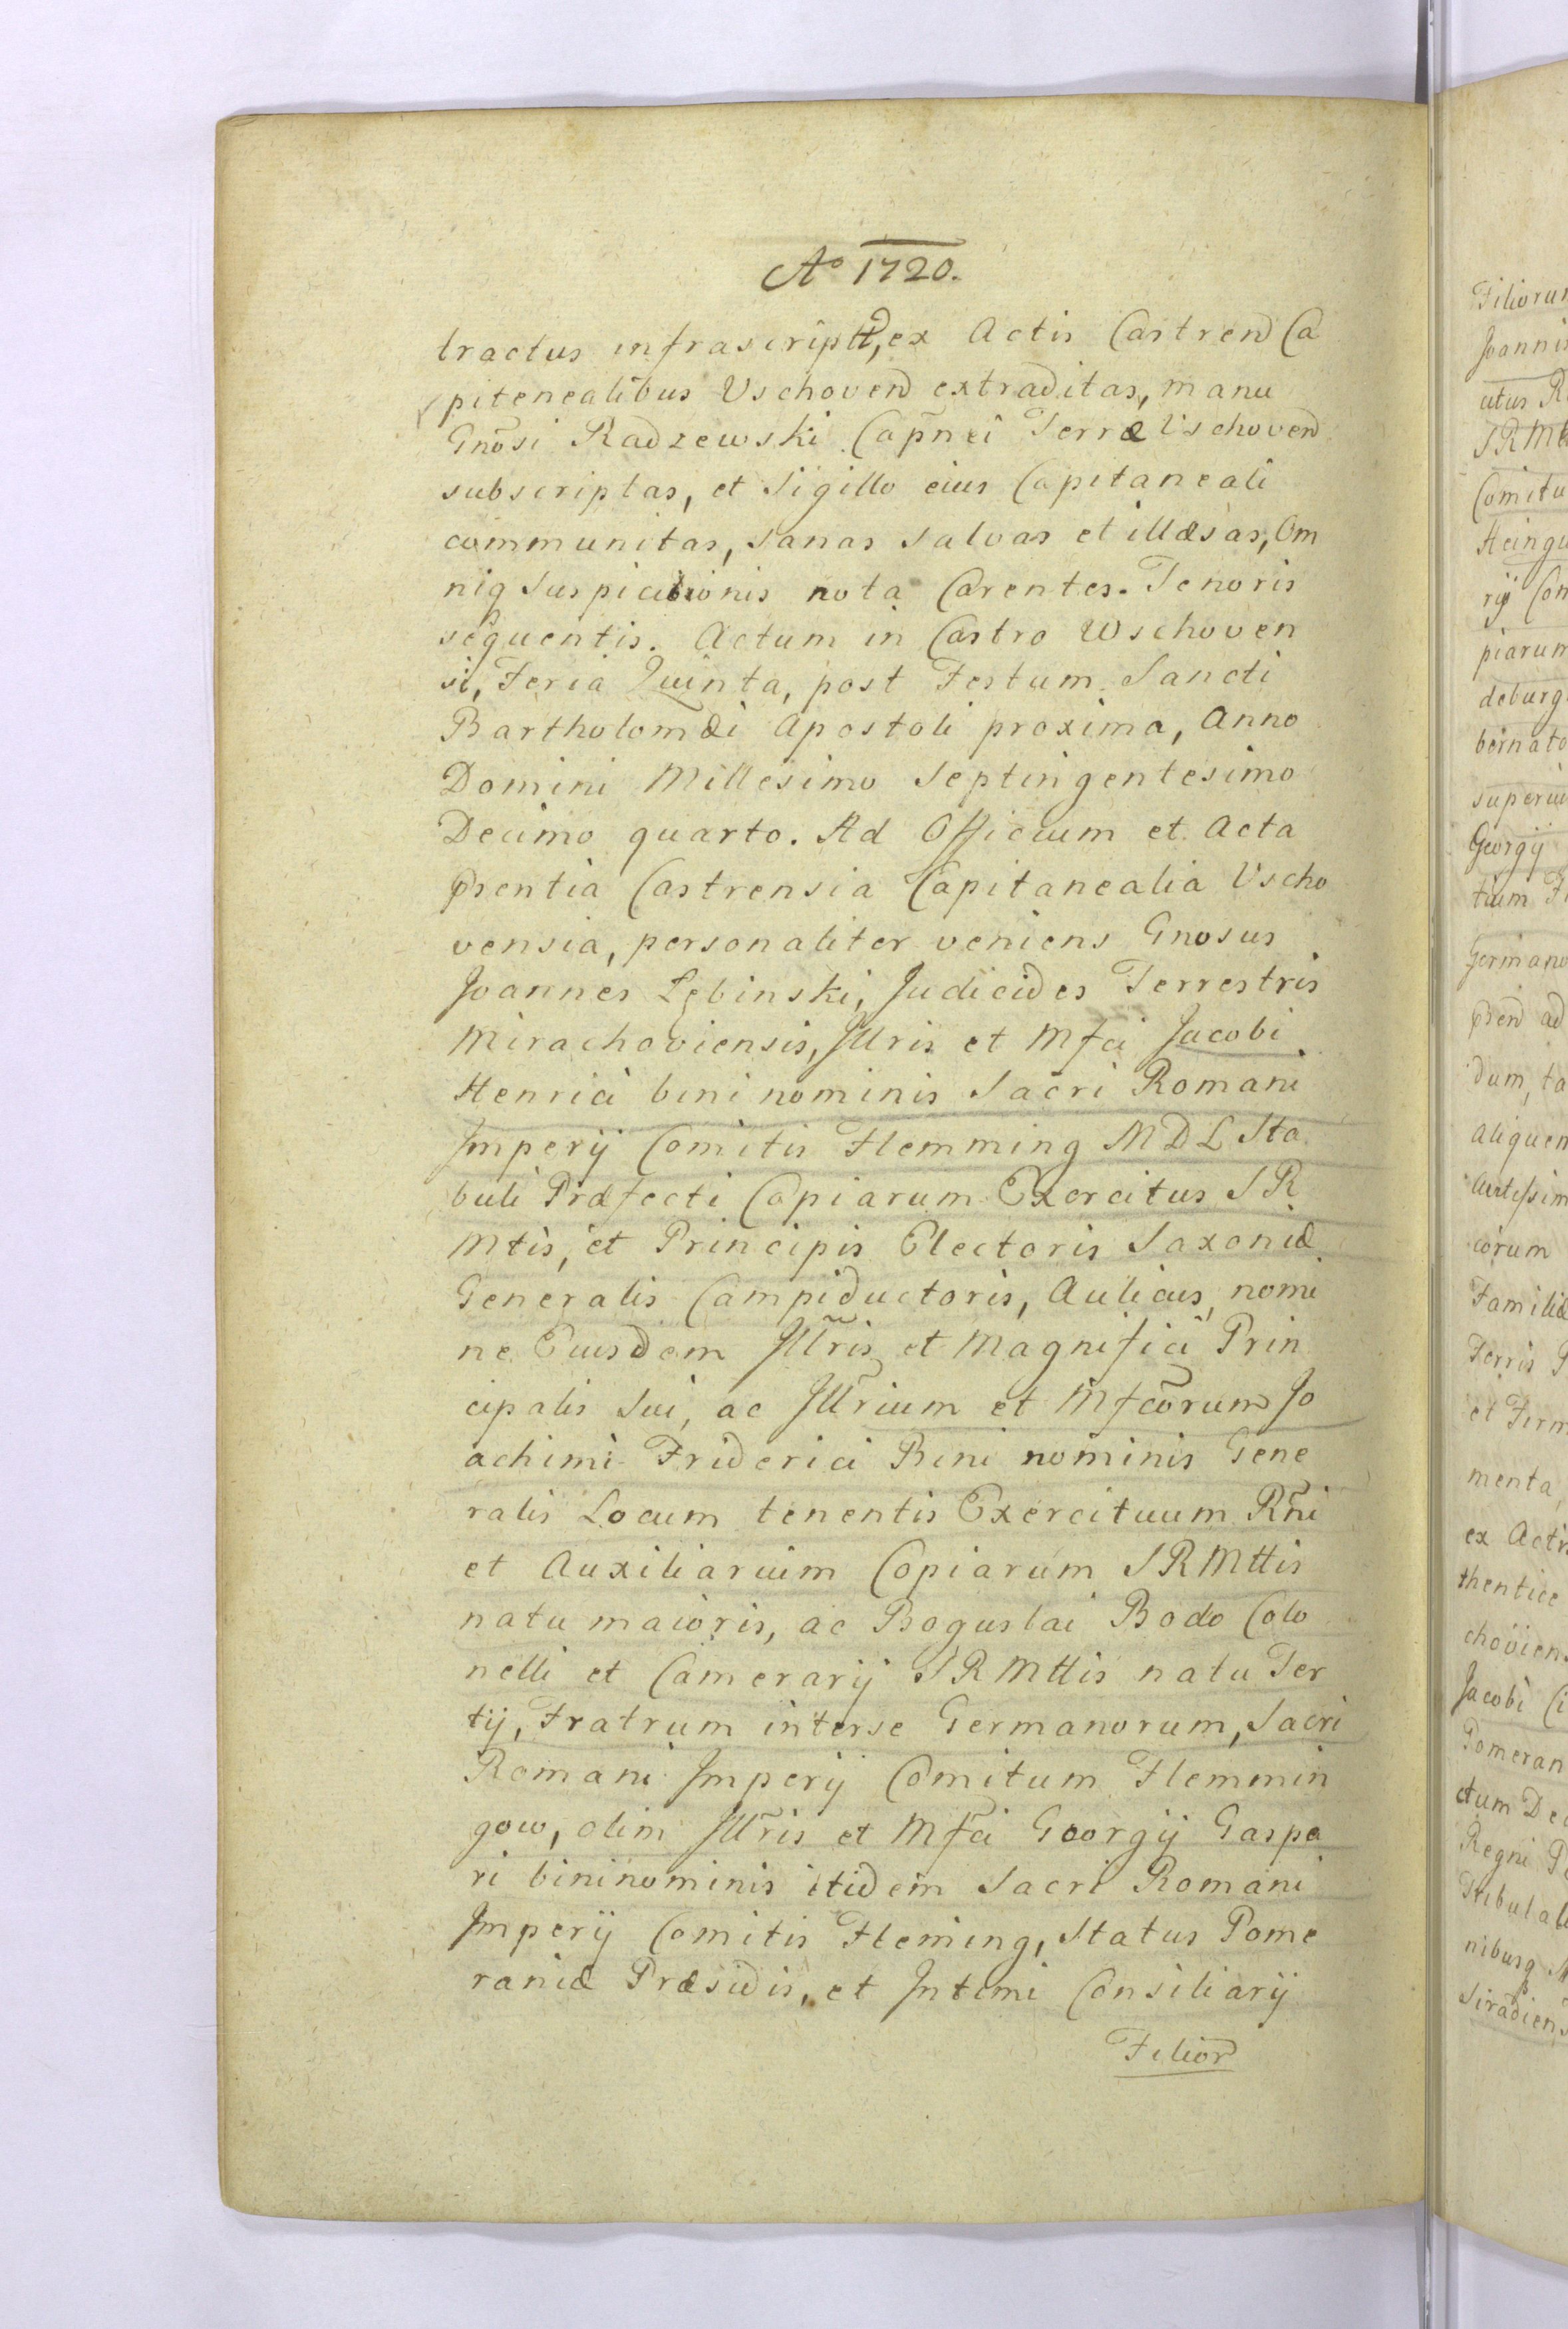 Ao 1720.
tractus infrascriptt, ex Actis Castrend Ca
pitenealibus Uschovend extraditas, manu
Gnosi Radzewski Capnei Terræ Uschovend
subscriptas, et Sigillo eius Capitaneali
communitas, sanas salvas et illæsas, Om
niq suspicionis nota Carentes. Tenoris
sequentis. Actum in Castro Wschoven
si, Feria Quinta, post Festum Sancti
Bartholomæi Apostoli proxima, Anno
Domini Millesimo Septingentesimo
Decimo quarto. Ad Officium et Acta
pñsentia Castrensia Capitanealia Uscho
vensia, personaliter veniens Gnosus
Joannes Lębinski, Judicides Terrestris
Mirachoviensis, Jllris et Mfci Jacobi
Henrici bini nominis Sacri Romani
Jmperij Comitis Flemming MDL Sta
buli Præfecti Copiarum Exercitus SR
Mtis, et Principis Electoris Saxoniæ
Generalis Campiductoris, Aulicus, nomi
ne Eiusdem Jllris et Magnifici Prin
cipalis Sui, ac Jllrium et Mfcorum Jo
achimi Friderici Bini nominis Gene
ralis Locum tenentis Exercituum Rñi
et Auxiliarium Copiarum SRMttis
natu maioris, ac Boguslai Bodo Colo
nelli et Camerarij SRMttis natu Ter
tij, Fratrum interse Germanorum, Sacri
Romani Jmperij Comitum Flemmin
gow, olim Jllris et Mfci Georgij Gaspa
ri bininominis itidem Sacri Romani
Jmperij Comitis Fleming, Status Pome
raniæ Præsidis, et Jntimi Consiliarij
Filior
Filiorum
Joannis
SRM
Comitu
rij Con
piarum
deburg
bernato
superiu
Georgij
tium
Germano
dum, ta
aliquem
corum
Familiæ
Terris
et Firm
menta,
ex Actis
thentice
choviens
Jacobi
Pomeran
ctum De
Regni
Siradiens